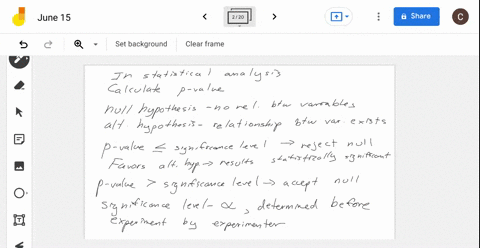 June 15
2 / 20
Share
C
Set background
Clear frame
In statistical analysis
Calculate p-value
null hypothesis - no rel. btw variables
alt hypothesis - relationship btw var. exists
p-value ≤ significance level → reject null
Favors alt. hyp → results statistically significant
p-value > significance level → accept null
significance level - α, determined before
experiment by experimenter